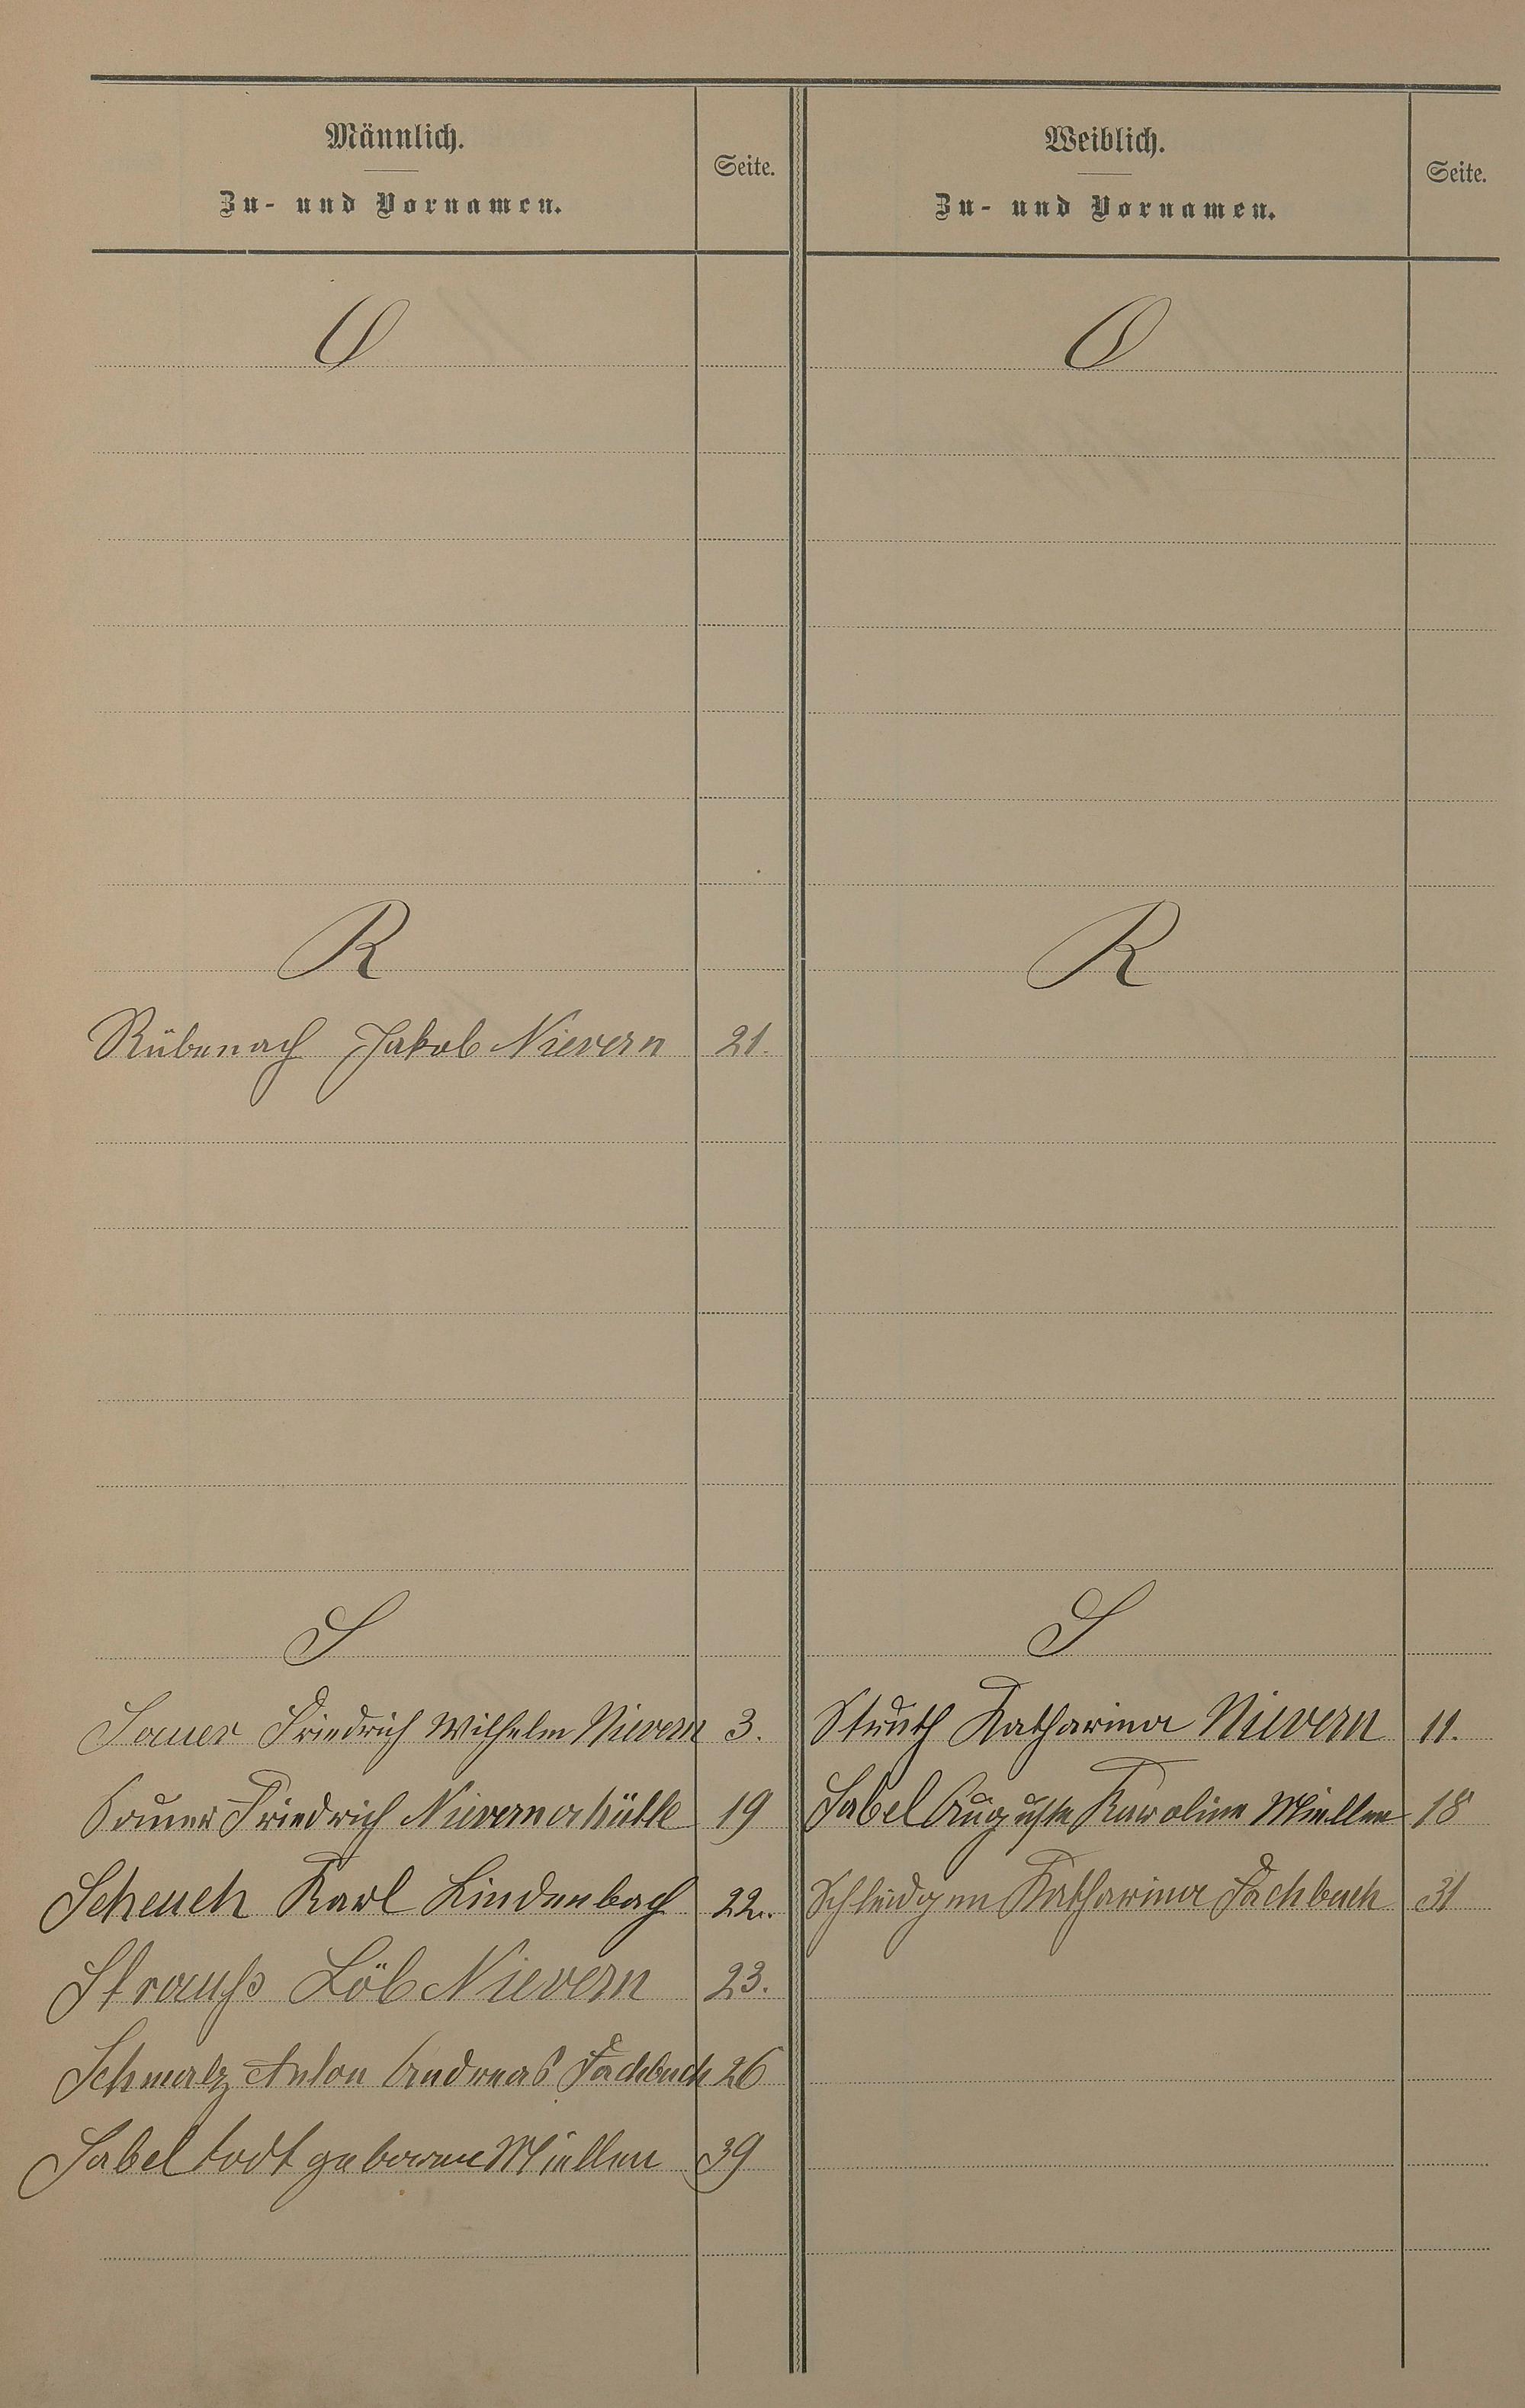 Männlich.
Zu- und Vornamen.
Seite.
Weiblich.
Zu- und Vornamen.
Seite.
O
O
R
R
Rübenach Jakob Nievern 21.
S
S
Sauer Friedrich Wilhelm Nievern 3.
Struth Katharina Nievern 11.
Sauer Friedrich Nievernerhütte 19
Sabel Auguste Karoline Miellen 18
Scheuch Karl Lindenbach 22.
Schleidgen Katharina Fachbach 31
Strauß Löb Nievern 23.
Schmalz Anton Andreas Fachbach 26
Sabel todtgeboren Miellen 39